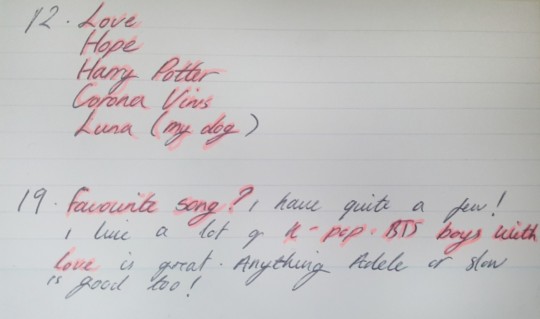 12. Love
Hope
Harry Potter
Corona Virus
Luna (my dog)
19. Favourite song? I have quite a few!
I like a lot of K-pop. BTS boys with
love is great. Anything Adele or slow
is good too!